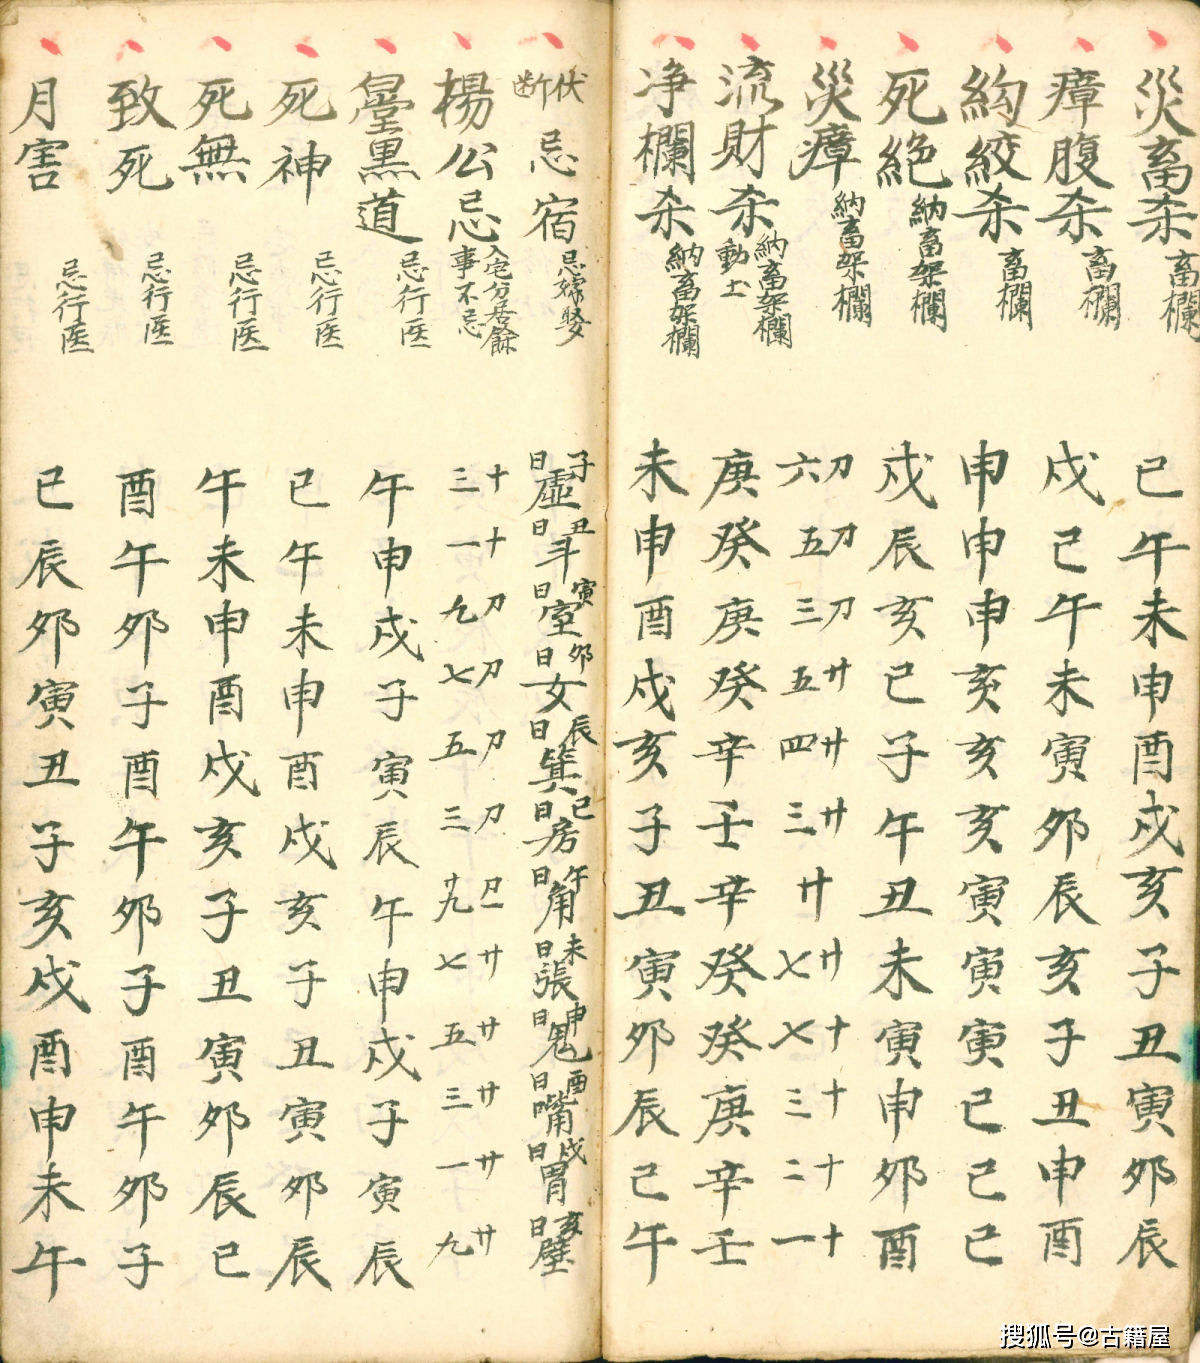 災畜杀 畜欄 巳午未申酉戌亥子丑寅卯辰
瘴腹杀 畜欄 戌己午未寅卯辰亥子丑申酉
絞杀 畜欄 申申申亥亥亥寅寅寅己己己
死絕 納畜架欄 戌辰亥巳子午丑未寅申卯酉
災瘴 納畜架欄 刀六 刀五 刀三 廿五 廿四 廿三 廿 廿七 十七 十三 十二 十一
流財杀 納畜架欄 動土 庚癸庚癸辛壬辛癸癸庚辛壬
净欄杀 納畜架欄 未申酉戌亥子丑寅卯辰己午
伏断忌宿 忌嫁娶 子日虛 丑日斗 寅日室 卯日女 辰日箕 巳日房 午日角 未日張 申日鬼 酉日嘴 戌日胃 亥日壁
楊公忌 入宅分居餘事不忌 十三 十一 刀九 刀七 刀五 刀三 廿九 廿七 廿五 廿三 廿一 廿九
黑道 忌行医 午申戌子寅辰午申戌子寅辰
死神 忌行医 巳午未申酉戌亥子丑寅卯辰
死無 忌行医 午未申酉戌亥子丑寅卯辰巳
致死 忌行医 酉午卯子酉午卯子酉午卯子
月害 忌行医 己辰卯寅丑子亥戌酉申未午
搜狐号@古籍屋